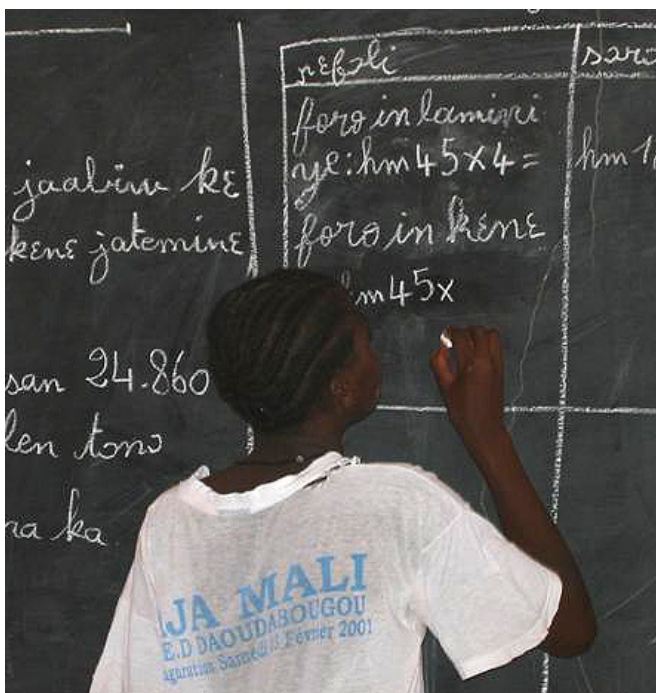 jaabiw kɛ
kɛnɛ jateminɛ
san 24.860
len tonɔ
ra ka
ɲɛfɔli
foro in lamini
ye: hm 45 x 4 =
foro in kɛnɛ
hm 45 x
sarɔ
hm 1
JA MALI
E.D DAOUDABOUGOU
Samedi Février 2001